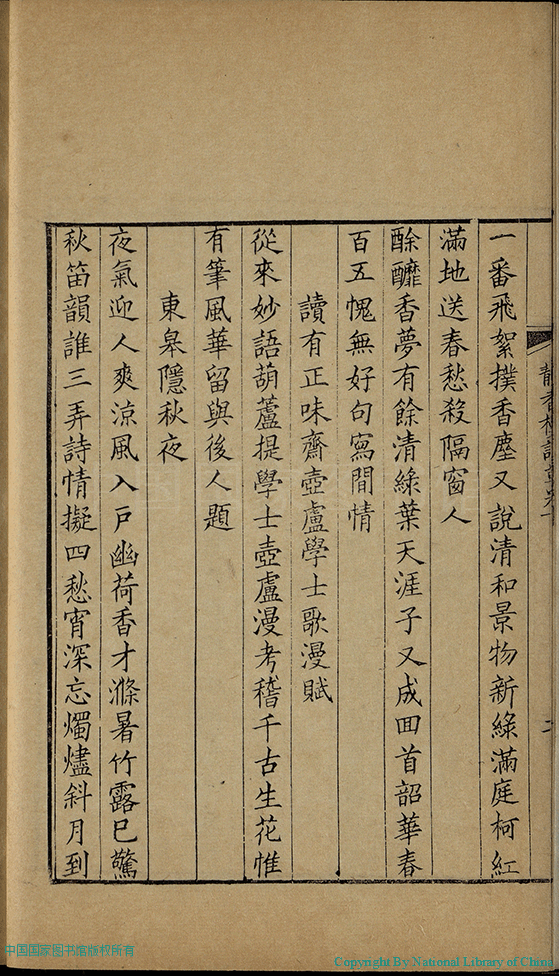 一番飛絮撲香塵又說清和景物新綠滿庭柯紅
滿地送春愁殺隔窗人
酴醾香夢有餘清綠葉天涯子又成囬首韶華春
百五愧無好句寫閒情
讀有正味齋壺盧學士歌漫賦
從來妙語葫蘆提學士壺盧漫考稽千古生花惟
有筆風華留與後人題
東皋隱秋夜
夜氣迎人爽涼風入戶幽荷香才滌暑竹露已驚
秋笛韻誰三弄詩情擬四愁宵深忘燭燼斜月到
中国国家图书馆版权所有
Copyright By National Library of China